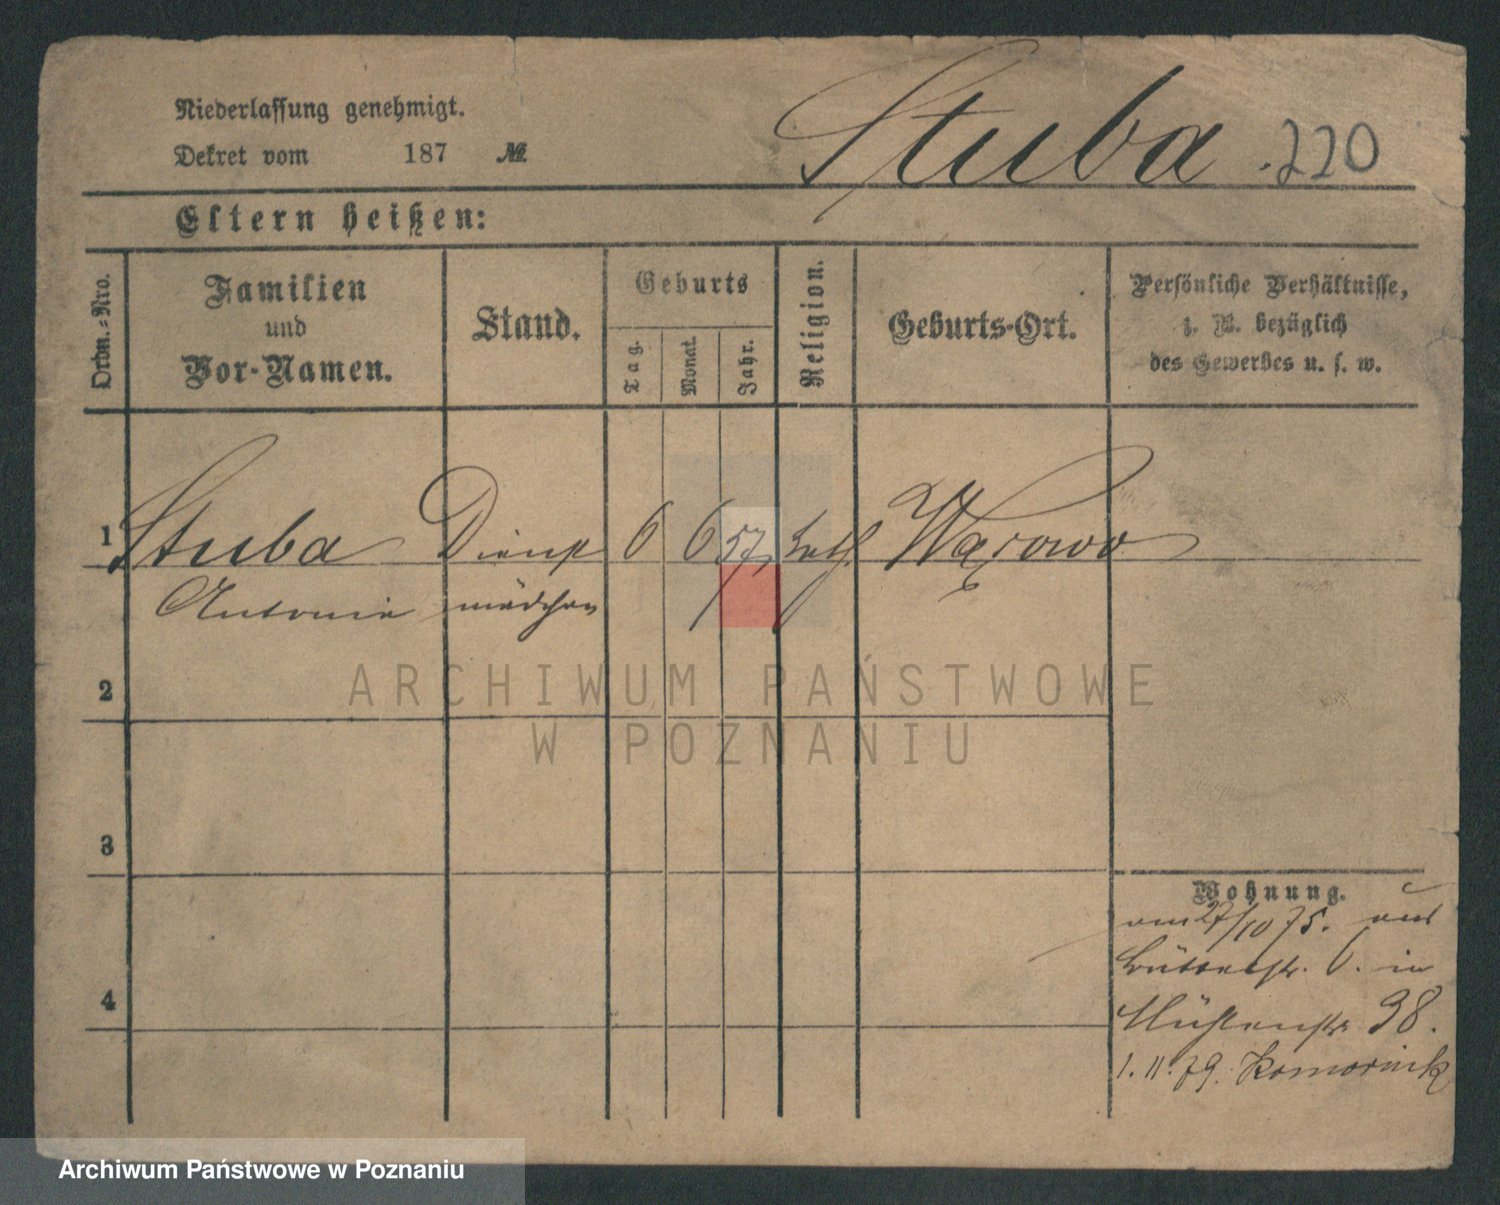 Niederlassung genehmigt.
Dekret vom 187 №
Stuba 220
Eltern heißen:
Ordn.-Nro.
Familien
und
Vor-Namen.
Stand.
Geburts
Tag.
Monat.
Jahr.
Religion.
Geburts-Ort.
Persönliche Verhältnisse,
z. B. bezüglich
des Gewerbes u. s. w.
1 Stuba Dienst 6 6 57, kath.
Antonie mädchen
2
3
4
Wohnung.
am 27/10 75. aus
6. in
Mühlenstr 38.
1. 11. 79. Komornik
ARCHIWUM PAŃSTWOWE
W POZNANIU
Archiwum Państwowe w Poznaniu